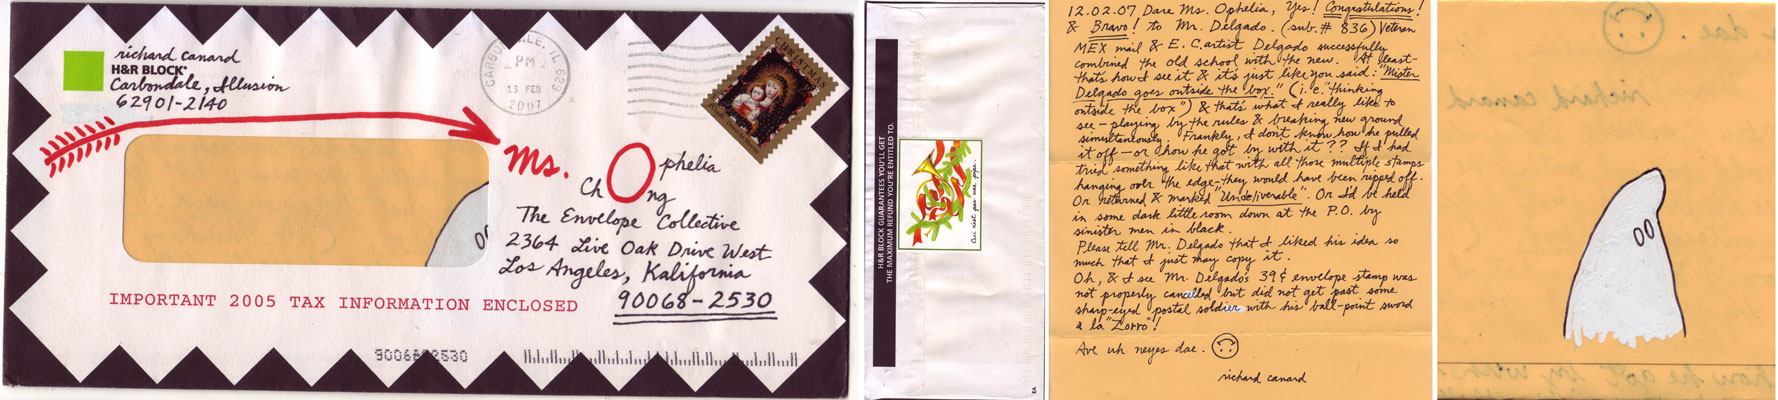 richard canard
H&R BLOCK®
Carbondale, Illusion
62901-2140
CARBONDALE, IL 629
PM
13 FEB
2007
CHRISTMAS
Ms. Ophelia
ChOng
The Envelope Collective
2364 Live Oak Drive West
Los Angeles, Kalifornia
90068-2530
IMPORTANT 2005 TAX INFORMATION ENCLOSED
H&R BLOCK GUARANTEES YOU'LL GET
THE MAXIMUM REFUND YOU'RE ENTITLED TO.
Ceci n'est pas une pipe.
12.02.07 Dare Ms. Ophelia, Yes! Congratulations!
& Bravo! to Mr. Delgado. (sub.# 836) Veteran
MEX mail & E.C. artist Delgado successfully
combined the old school with the new. At least-
that's how I see it & it's just like you said: "Mister
Delgado goes outside the box." (i.e. "thinking
outside the box") & that's what I really like to
see - playing by the rules & breaking new ground
simultaneously. Frankly, I don't know how he pulled
it off - or (how he got by with it?? If I had
tried something like that with all those multiple stamps
hanging over the edge, they would have been ripped off.
Or returned & marked "Undeliverable". Or I'd be held
in some dark little room down at the P.O. by
sinister men in black.
Please tell Mr. Delgado that I liked his idea so
much that I just may copy it.
Oh, & I see Mr. Delgado's 39¢ envelope stamp was
not properly cancelled but did not get past some
sharp-eyed postal soldier with his ball-point sword
a la "Zorro"!
Ave uh neyes dae.
richard canard